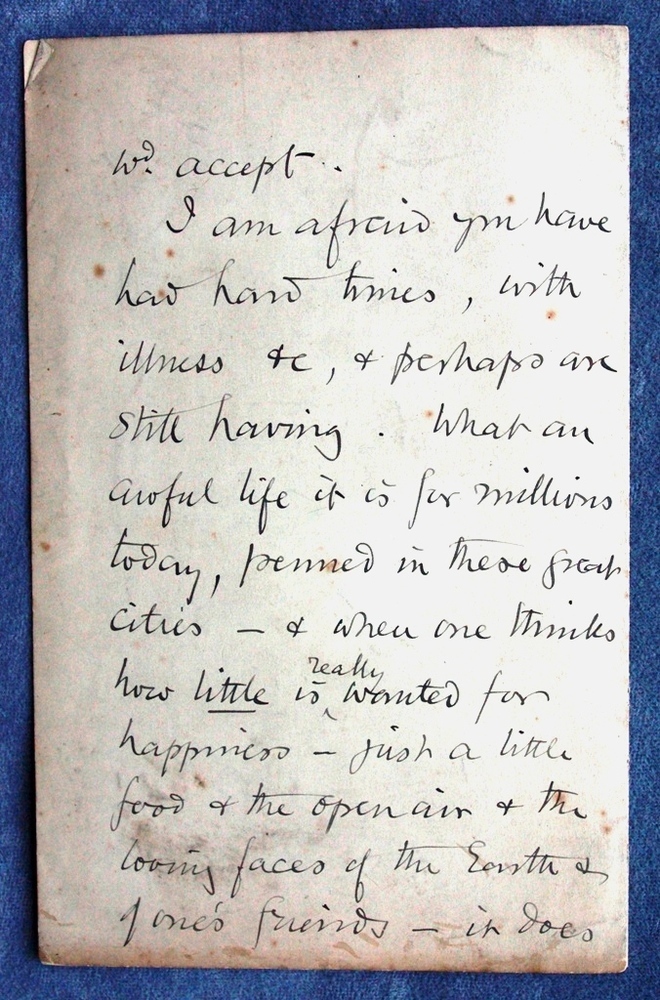 wd. accept.
I am afraid you have
had hard times, with
illness &c, & perhaps are
still having. What an
awful life it is for millions
today, penned in these great
cities – & when one thinks
how little is really wanted for
happiness – just a little
food & the open air & the
loving faces of the Earth &
of one's friends – it does